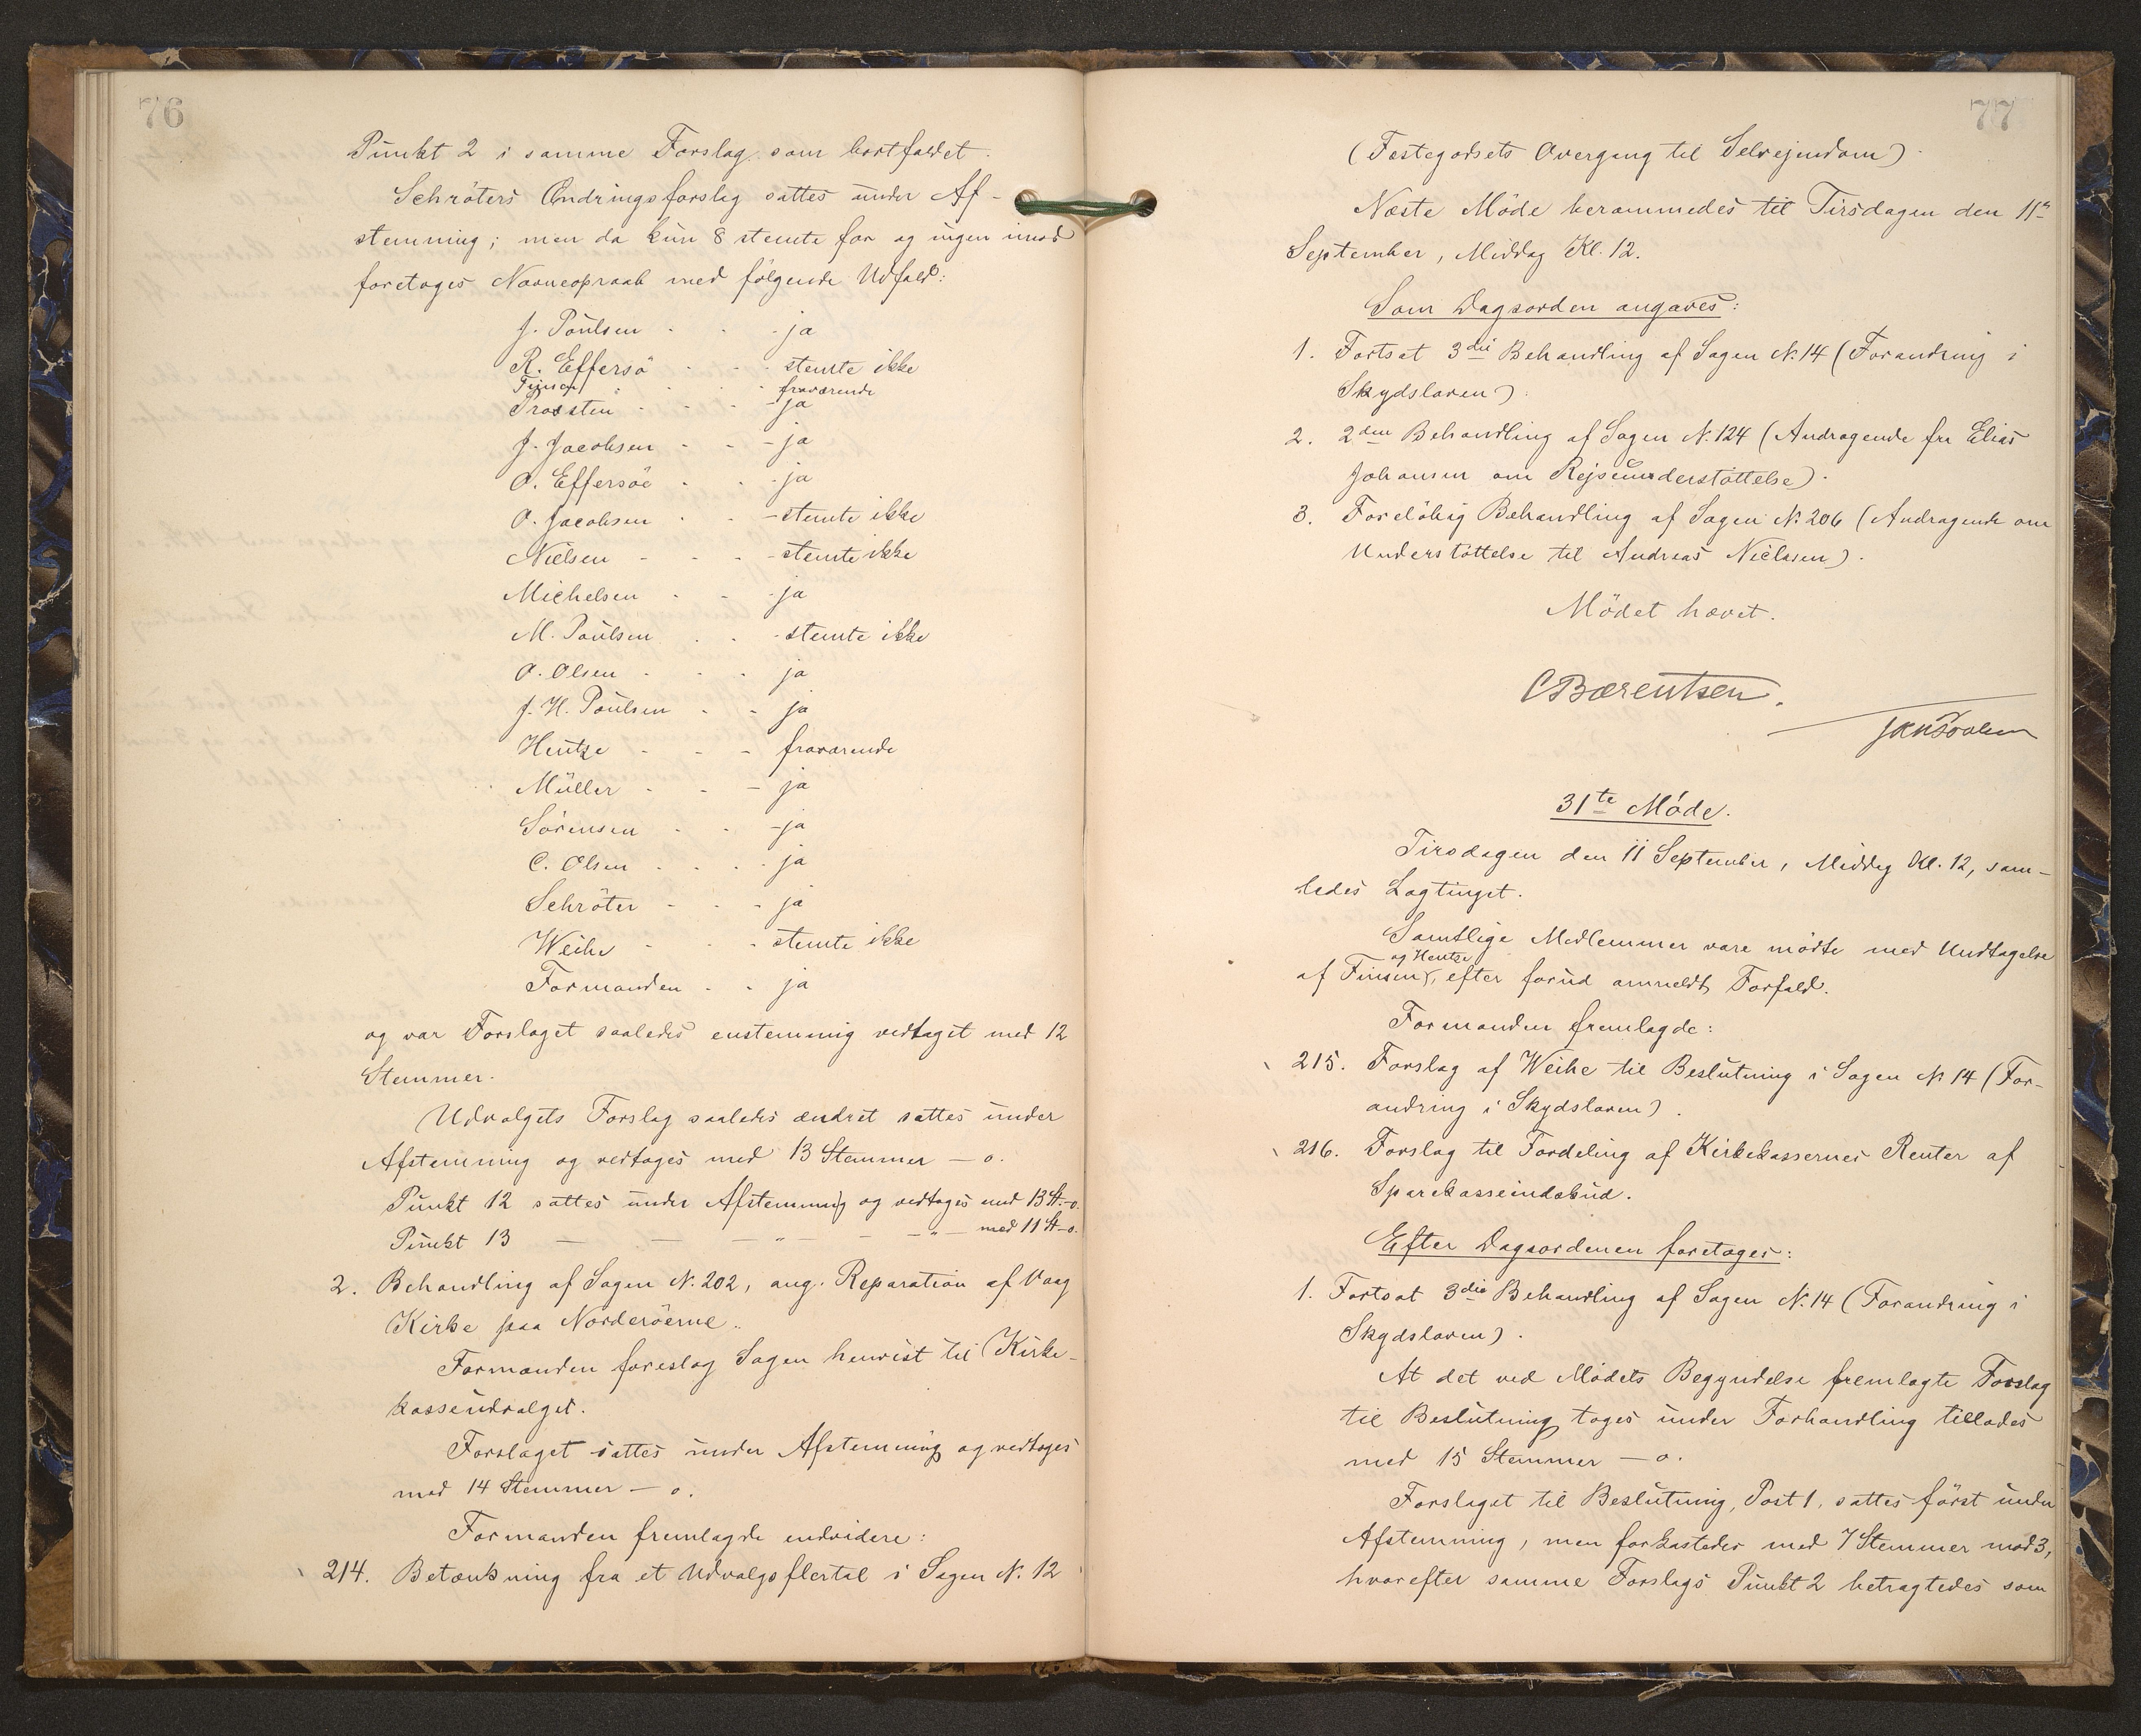 76
Punkt 2 i samme Forslag som bortfaldet.
Schröters Ændringsforslag sattes under Af-
stemning; men da kun 8 stemte for og ingen imod
foretoges Navneopraab med følgende Udfald:
J. Poulsen - - - ja
R. Effersö - - - stemte ikke
Finsen - - - fraværende
Provsten - - - ja
J. Jacobsen - - - ja
O. Effersöe - - - ja
O. Jacobsen - - - stemte ikke
Nielsen - - - stemte ikke
Michelsen - - - ja
M. Poulsen - - - stemte ikke
O. Olsen - - - ja
J. H. Poulsen - - ja
Hentze - - - fraværende
Müller - - - ja
Sörensen - - - ja
C. Olsen - - - - ja
Schröter - - - ja
Weihe - - - stemte ikke
Formanden - - ja
og var Forslaget saaledes enstemmig vedtaget med 12
Stemmer.
Udvalgets Forslag saaledes ændret sattes under
Afstemning og vedtoges med 13 Stemmer – o.
Punkt 12 sattes under Afstemning og vedtoges med 13 St. – o.
Punkt 13 — — — „ — — „ — med 11 St – o.
2. Behandling af Sagen N. 202, ang. Reparation af Vaag
Kirke paa Norderöerne.
Formanden foreslog Sagen henvist til Kirke-
kasseudvalget.
Forslaget sattes under Afstemning og vedtoges
med 14 Stemmer – o.
Formanden fremlagde endvidere:
214. Betænkning fra et Udvalgsflertal i Sagen N. 12
77
(Festegodsets Overgang til Selvejendom).
Næste Möde berammedes til Tirsdagen den 11te
September, Middag Kl. 12.
Som Dagsorden angaves:
1. Fortsat 3die Behandling af Sagen N. 14 (Forandring i
Skydsloven).
2. 2den Behandling af Sagen N. 124 (Andragende fra Elias
Johansen om Rejseunderstöttelse).
3. Foreløbig Behandling af Sagen N. 206 (Andragende om
Understöttelse til Andreas Niclasen).
Mödet hævet.
C Bærentsen.
31te Möde.
Tirsdagen den 11 September, Middag Kl. 12, sam-
ledes Lagtinget.
Samtlige Medlemmer vare mödte med Undtagelse
og Hentze
af Finsen, efter forud anmeldt Forfald.
Formanden fremlagde:
215. Forslag af Weihe til Beslutning i Sagen N 14 (For-
andring i Skydsloven).
216. Forslag til Fordeling af Kirkekassernes Renter af
Sparekasseindskud.
Efter Dagsordenen foretoges:
1. Fortsat 3die Behandling af Sagen N. 14 (Forandring i
Skydsloven).
At det ved Mödets Begyndelse fremlagte Forslag
til Beslutning toges under Forhandling tillodes
med 15 Stemmer – o.
Forslaget til Beslutning, Post 1, sattes först under
Afstemning, men forkastedes med 7 Stemmer mod 3,
hvorefter samme Forslags Punkt 2 betragtedes som